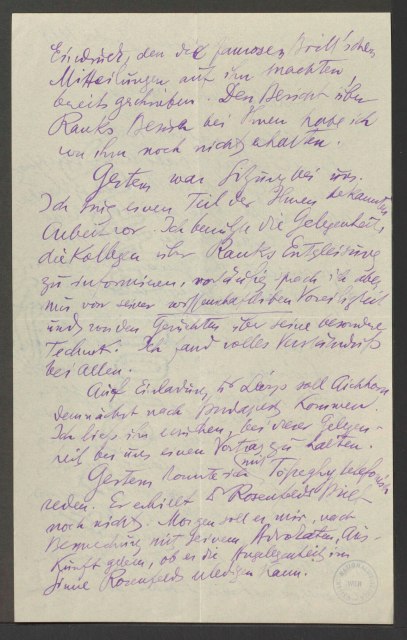 Eindruck, den die famosen Brill'schen
Mitteilungen auf ihn machten,
bereits geschrieben. Den Bericht über
Ranks Besuch bei Ihnen habe ich
von ihm noch nicht erhalten.
Gestern war Sitzung bei uns.
Ich trug einen Teil der Ihnen bekannten
Arbeit vor. Ich benützte die Gelegenheit,
die Kollegen über Ranks Entgleisung
zu informieren, vorläufig sprach ich aber
nur von seiner wissenschaftlichen Voreiligkeit
und von den Gerüchten über seine besondere
Technik. Ich fand volles Verständniß
bei Allen.
Auf Einladung soll Aichhorn
demnächst nach Budapest kommen.
Ich ließ ihn ersuchen, bei dieser Gelegen-
heit bei uns einen Vortrag zu halten.
Gestern konnte ich mit telefonisch
reden. Er erhielt Rosenfelds Brief
noch nicht. Morgen soll er mir, nach
Besprechung mit seinem Advokaten, Aus-
kunft geben, ob er die Angelegenheit im
Sinne Rosenfelds erledigen kann.
WIEN